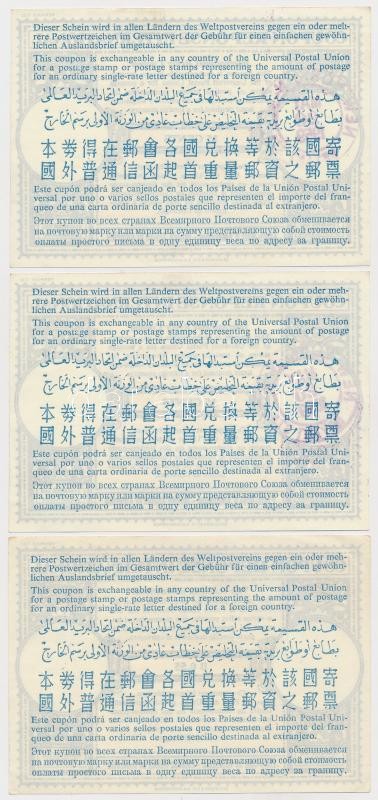 Dieser Schein wird in allen Ländern des Weltpostvereins gegen ein oder meh-
rere Postwertzeichen im Gesamtwert der Gebühr für einen einfachen gewöhn-
lichen Auslandsbrief umgetauscht.
This coupon is exchangeable in any country of the Universal Postal Union
for a postage stamp or postage stamps representing the amount of postage
for an ordinary single-rate letter destined for a foreign country.
هذه القسيمة يمكن استبدالها في جميع البلدان الداخلة ضمن اتحاد البريد العالمي
بطابع أو طوابع بريد بقيمة التخليص على خطاب عادي من الوزنة الأولى برسم الخارج
本券得在郵會各國兌換等於該國寄
國外普通信函起首重量郵資之郵票
Este cupón podrá ser canjeado en todos los Países de la Unión Postal Uni-
versal por uno o varios sellos postales que representen el importe del fran-
queo de una carta ordinaria de porte sencillo destinada al extranjero.
Этот купон во всех странах Всемирного Почтового Союза обменивается
на почтовую марку или марки на сумму представляющую собой стоимость
оплаты простого письма в одну единицу веса по адресу за границу.
Dieser Schein wird in allen Ländern des Weltpostvereins gegen ein oder meh-
rere Postwertzeichen im Gesamtwert der Gebühr für einen einfachen gewöhn-
lichen Auslandsbrief umgetauscht.
This coupon is exchangeable in any country of the Universal Postal Union
for a postage stamp or postage stamps representing the amount of postage
for an ordinary single-rate letter destined for a foreign country.
هذه القسيمة يمكن استبدالها في جميع البلدان الداخلة ضمن اتحاد البريد العالمي
بطابع أو طوابع بريد بقيمة التخليص على خطاب عادي من الوزنة الأولى برسم الخارج
本券得在郵會各國兌換等於該國寄
國外普通信函起首重量郵資之郵票
Este cupón podrá ser canjeado en todos los Países de la Unión Postal Uni-
versal por uno o varios sellos postales que representen el importe del fran-
queo de una carta ordinaria de porte sencillo destinada al extranjero.
Этот купон во всех странах Всемирного Почтового Союза обменивается
на почтовую марку или марки на сумму представляющую собой стоимость
оплаты простого письма в одну единицу веса по адресу за границу.
Dieser Schein wird in allen Ländern des Weltpostvereins gegen ein oder meh-
rere Postwertzeichen im Gesamtwert der Gebühr für einen einfachen gewöhn-
lichen Auslandsbrief umgetauscht.
This coupon is exchangeable in any country of the Universal Postal Union
for a postage stamp or postage stamps representing the amount of postage
for an ordinary single-rate letter destined for a foreign country.
هذه القسيمة يمكن استبدالها في جميع البلدان الداخلة ضمن اتحاد البريد العالمي
بطابع أو طوابع بريد بقيمة التخليص على خطاب عادي من الوزنة الأولى برسم الخارج
本券得在郵會各國兌換等於該國寄
國外普通信函起首重量郵資之郵票
Este cupón podrá ser canjeado en todos los Países de la Unión Postal Uni-
versal por uno o varios sellos postales que representen el importe del fran-
queo de una carta ordinaria de porte sencillo destinada al extranjero.
Этот купон во всех странах Всемирного Почтового Союза обменивается
на почтовую марку или марки на сумму представляющую собой стоимость
оплаты простого письма в одну единицу веса по адресу за границу.